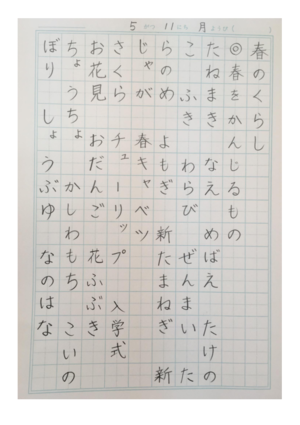 5がつ 11にち 月ようび
春のくらし
◎春をかんじるもの
たねまき なえ めばえ たけの
こ ふき わらび ぜんまい た
らのめ よもぎ 新たまねぎ 新
じゃが 春キャベツ
さくら チューリップ 入学式
お花見 おだんご 花ふぶき
ちょうちょ かしわもち こいの
ぼり しょうぶゆ なのはな